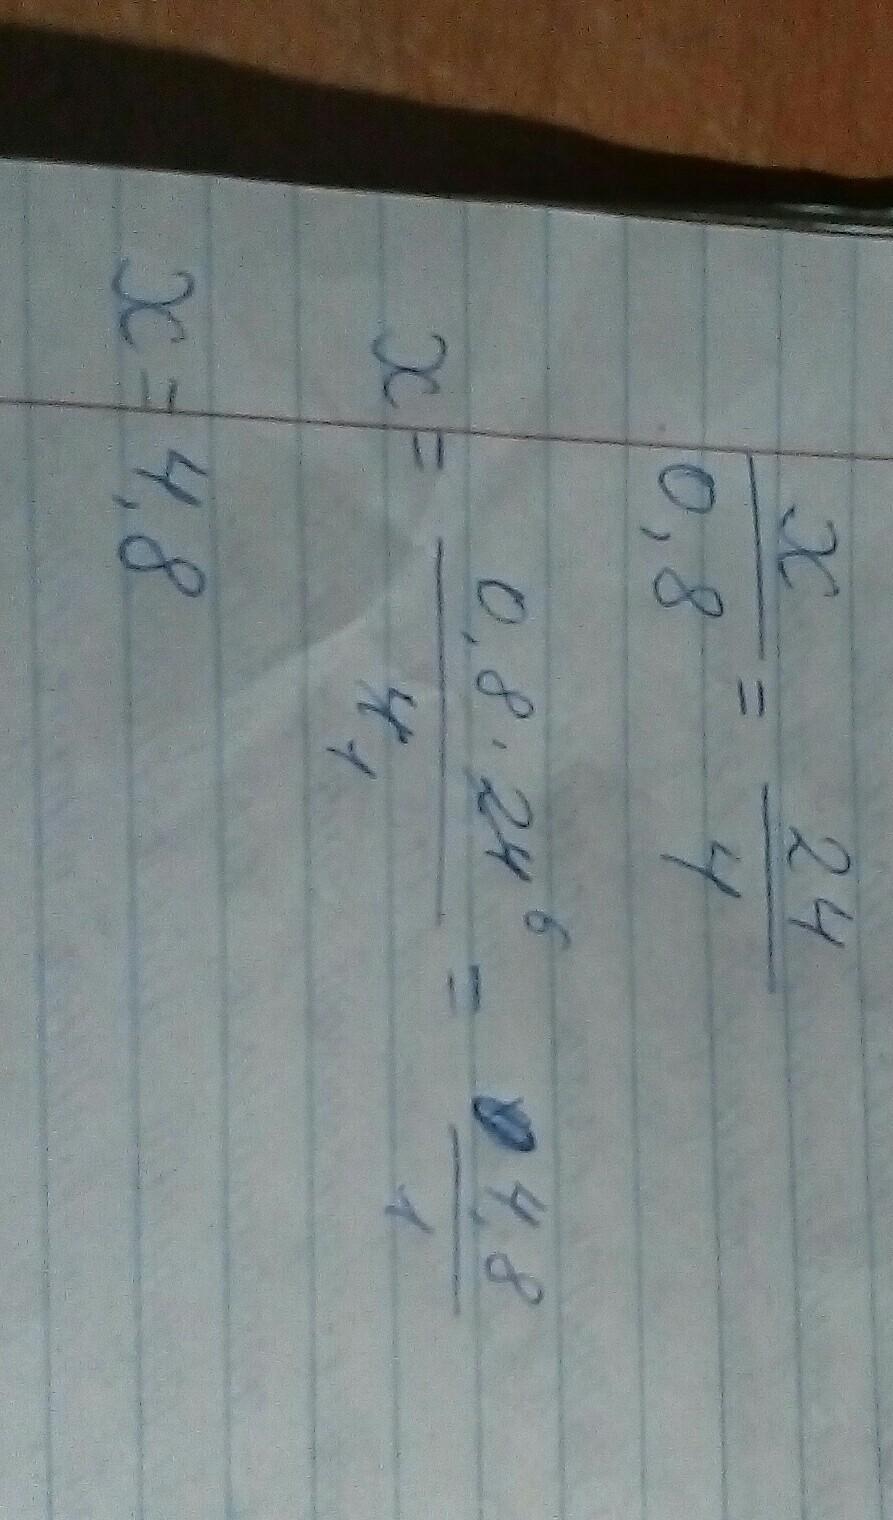 x/0,8 = 24/4
x = 0,8 · 24⁶/4₁ = 4,8/1
x = 4,8